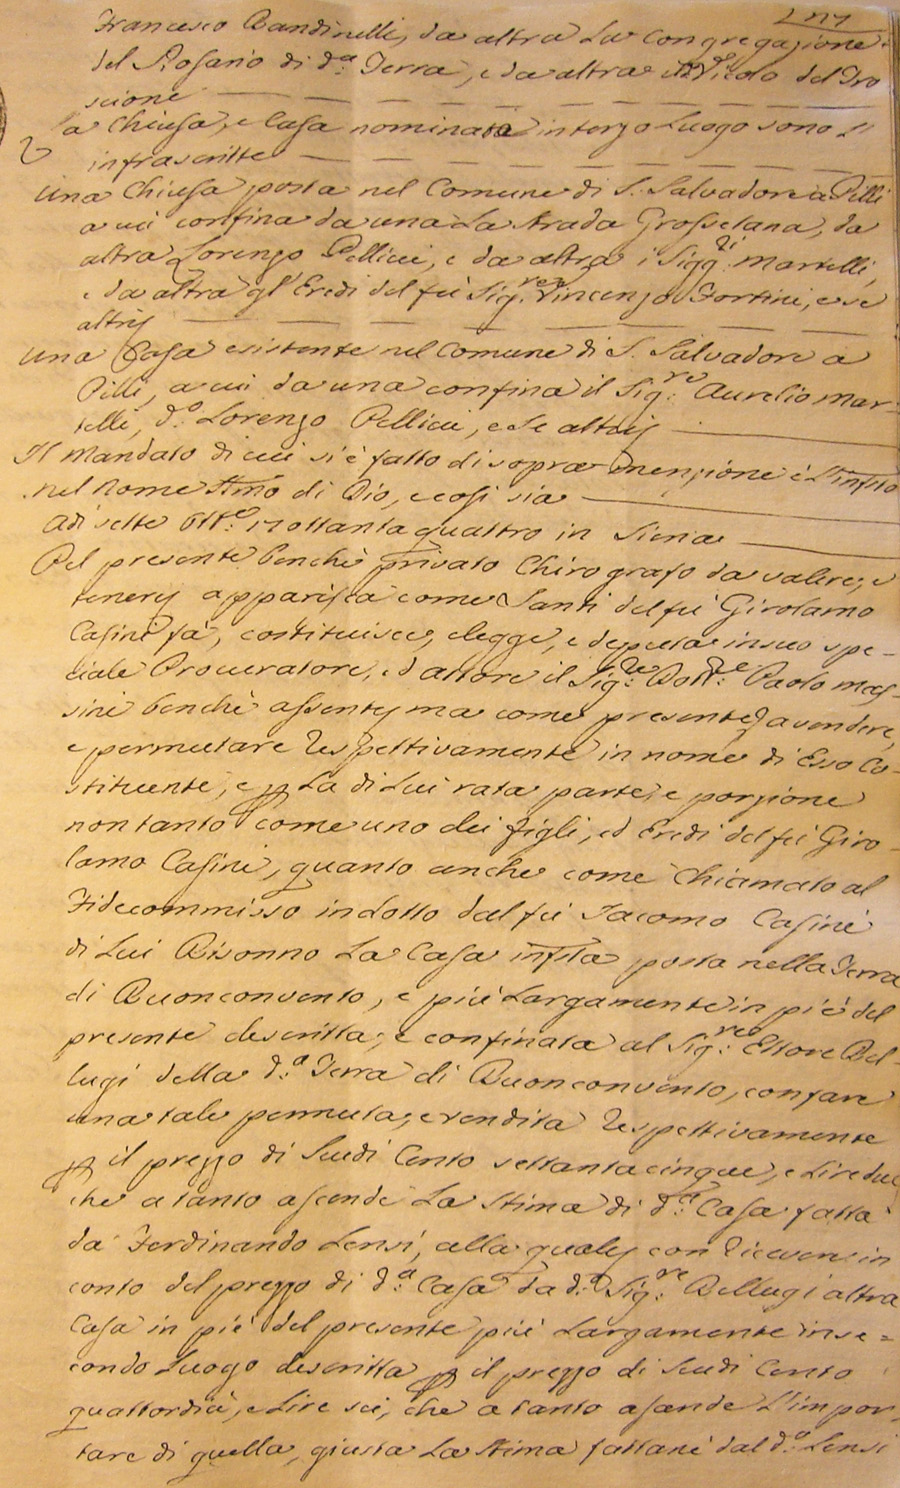 Francesco Bandinelli, da altra La Congregazione
del Rosario di d.ª Terra, e da altra il Vicolo del Tro
scione
La Chiusa, e Casa nominata in terzo Luogo sono l'
infrascritte
Una Chiusa posta nel Comune di S. Salvadore a Pilli
a cui confina da una La Strada Grossetana, da
altra Lorenzo Pellicci, e da altra i Sigg.ri Martelli,
e da altra gl'Eredi del fù Sig.re Vincenzo Fortini, e se
altri
Una Casa esistente nel Comune di S. Salvadore a
Pilli, a cui da una confina il Sig.re Aurelio Mar-
telli, d.o Lorenzo Pellicci, e se altri
Il Mandato di cui si è fatto di sopra menzione è L'infrito
nel Nome SSmo di Dio, e così sia
Adì sette Ott.e 17 ottanta quattro in Siena
Pel presente benchè privato Chirografo da valere, e
tenere apparisca come Santi del fù Girolamo
Casini fà, costituisce, elegge, e deputa in suo spe-
ciale Procuratore, ed attore il Sig.re Dott.re Paolo Mas-
sini benchè assente, ma come presente a vendere,
e permutare respettivamente in nome di Esso Co-
stituente, e p La di Lui rata parte, e porzione
non tanto come uno dei figli, ed Eredi del fù Giro-
lamo Casini, quanto anche come Chiamato al
Fidecommisso indotto dal fù Iacomo Casini
di Lui Bisonno La Casa infrita posta nella Terra
di Buonconvento, e più Largamente in piè del
presente descritta, e confinata al Sig.re Ettore Bel-
lugi della d.a Terra di Buonconvento, con fare
una tale permuta, e vendita respettivamente
p il prezzo di Scudi Cento settantacinque, e Lire due
che a tanto ascende La Stima di d.a Casa fatta
da Ferdinando Lensi, alla quale con ricevere in
conto del prezzo di d.a Casa da d.o Sig.re Bellugi altra
Casa in piè del presente più Largamente in se=
condo Luogo descritta p il prezzo di Scudi Cento
quattordici, e Lire sei, che a tanto ascende L'impor-
tare di quella, giusta La Stima fattane dal d.o Lensi